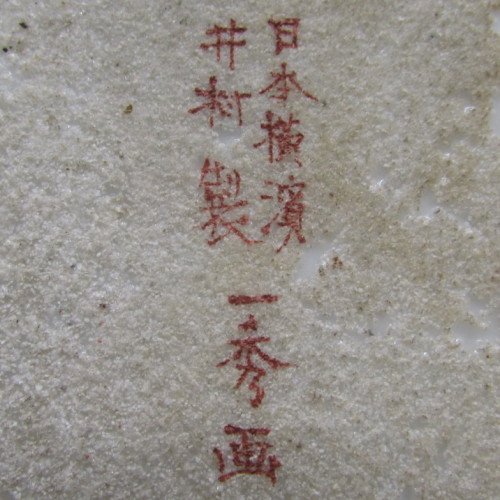 日本橫濱
井村製
一秀画